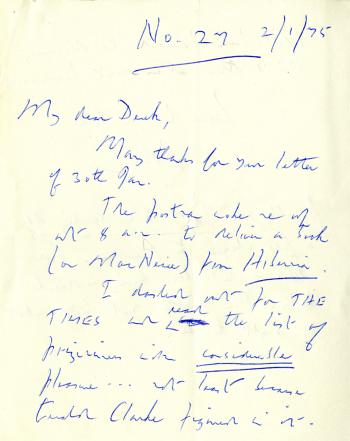 No. 27 2/1/75
My dear Derek,
Many thanks for your letter
of 30th
The postman woke me up
at 8 a.m. to deliver a book
(on MacNeice) from Hibernia.
I dashed out for THE
TIMES and read the list of
with considerable
pleasure ... not least because
Clarke figured in it.